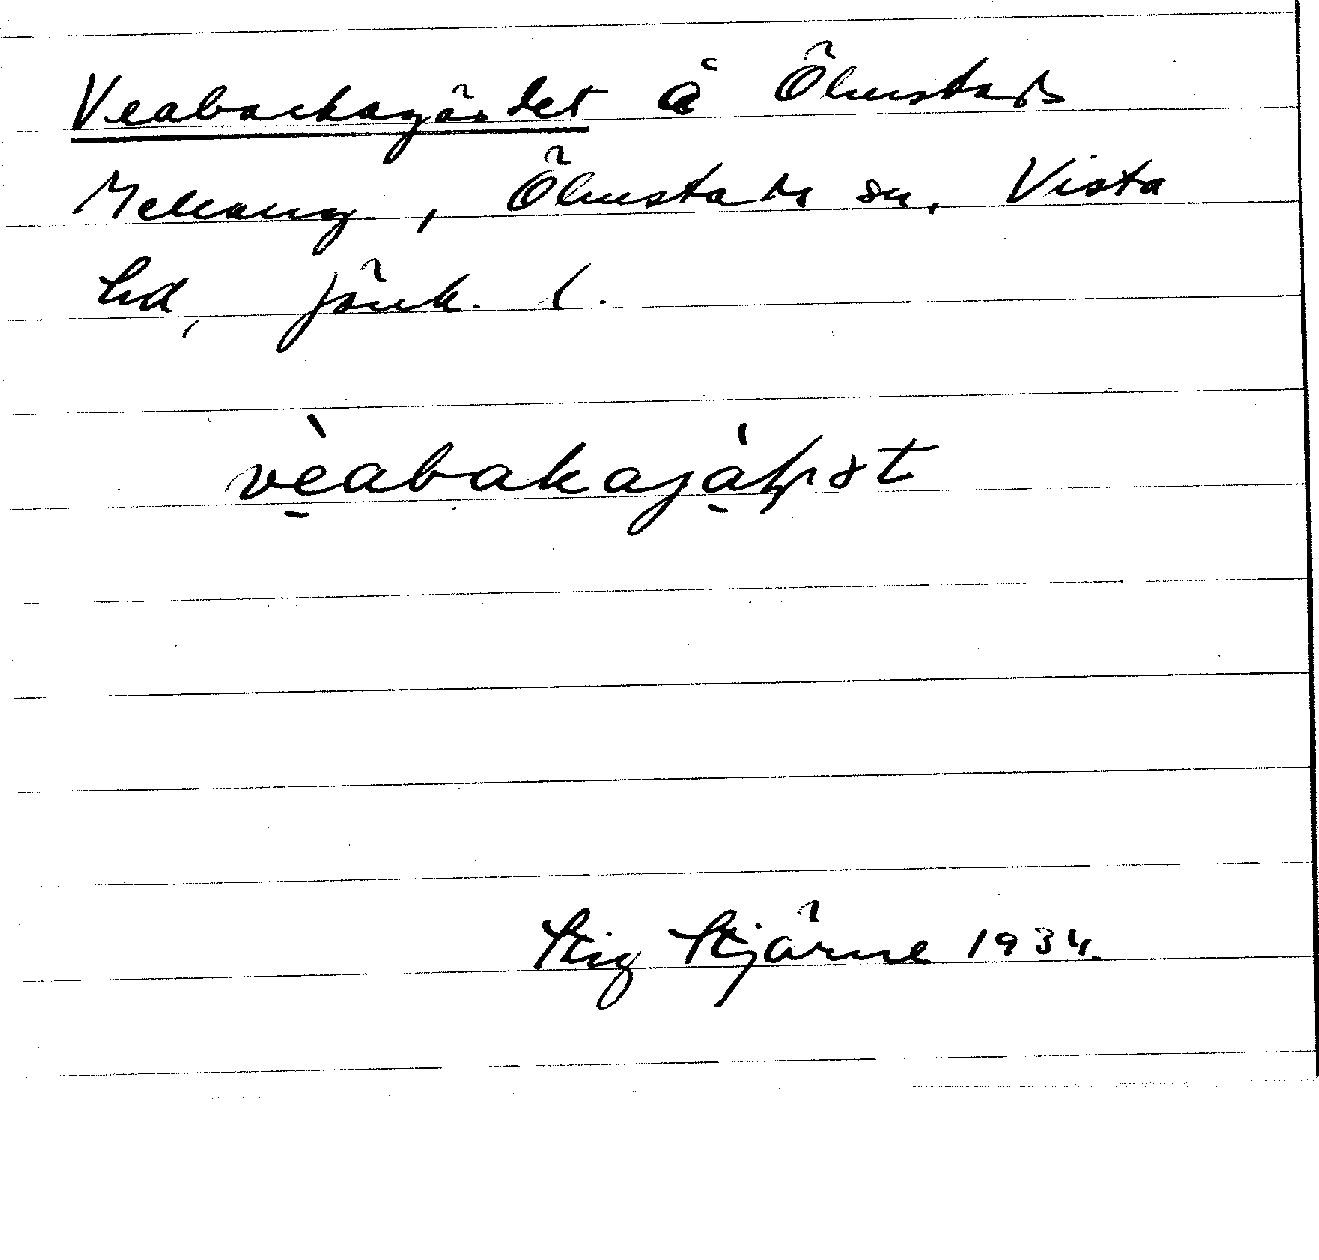 Veabackagärdet å Ölmstads
Mellang, Ölmstads sn, Vista
hd, Jönk. l.
vèabakajáʰṛət
Stig Stjärne 1934.